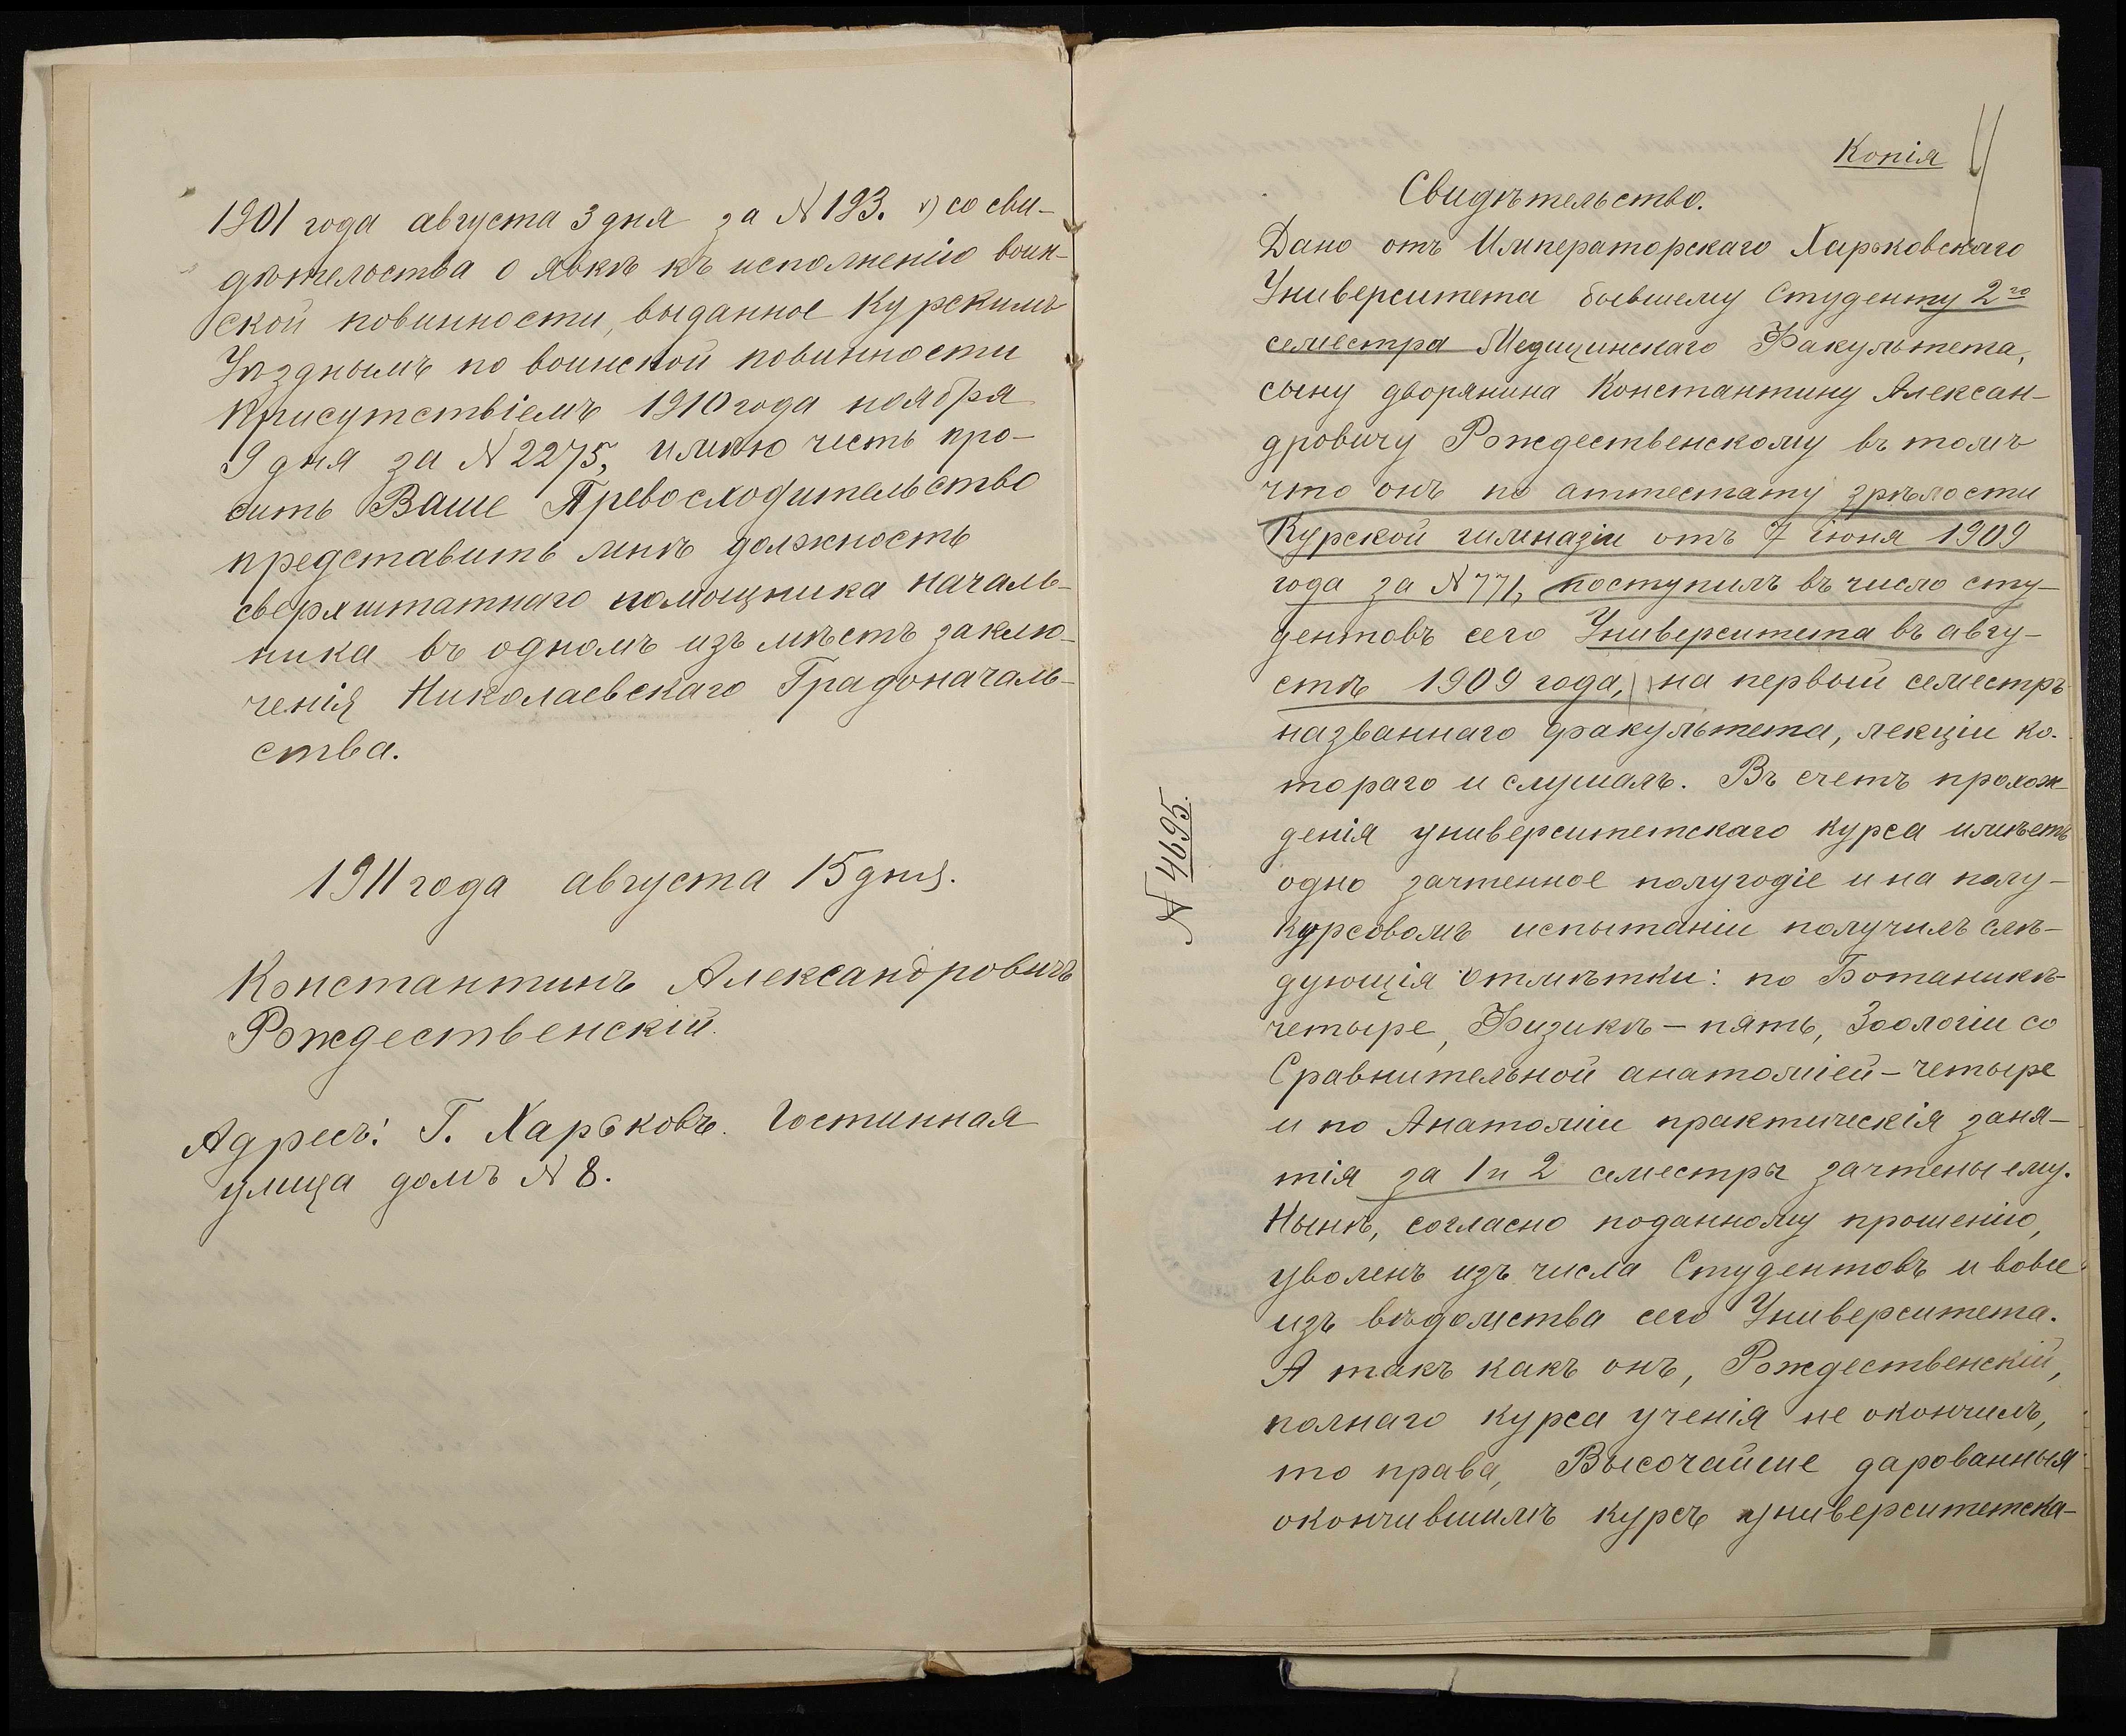 1901 года августа 3 дня за N 193. v) со сви-
дѣтельства о явкѣ къ исполненію воин-
ской повинности, выданное Курскимъ
Уѣзднымъ по воинской повинности
Присутствіемъ 1910 года ноября
9 дня за N 2275, имѣю честь про-
сить Ваше Превосходительство
представить мнѣ должность
сверхштатнаго помощника началь-
ника въ одномъ изъ мѣстъ заклю-
ченія Николаевскаго Градоначаль-
ства.
1911 года августа 15 дня.
Константинъ Александровичъ
Рождественскій.
Адресъ: Г. Харьковъ. Гостинная
улица домъ N 8.
Копія
Свидѣтельство.
Дано отъ Императорскаго Харьковскаго
Университета бывшему Студенту 2го
семестра Медицинскаго Факультета,
сыну дворянина Константину Алексан-
дровичу Рождественскому въ томъ
что онъ по аттестату зрѣлости
Курской гимназіи отъ 7 іюня 1909
года за N 771, поступилъ въ число сту-
дентовъ сего Университета въ авгу-
стѣ 1909 года, на первый семестръ
названнаго факультета, лекціи ко-
тораго и слушалъ. Въ счетъ прохож-
денія университетскаго курса имѣетъ
одно зачтенное полугодіе и на полу-
курсовомъ испытаніи получилъ слѣ-
дующія отмѣтки: по Ботаникѣ-
четыре, Физикѣ – пять, Зоологіи со
Сравнительной анатоміей – четыре
и по Анатоміи практическія заня-
тія за 1 и 2 семестры зачтены ему.
Нынѣ, согласно поданному прошенію,
уволенъ изъ числа Студентовъ и вовсе
изъ вѣдомства сего Университета.
А такъ какъ онъ, Рождественскій,
полнаго курса ученія не окончилъ,
то права, Высочайше дарованныя
окончившимъ курсъ университетска-
N 4695.